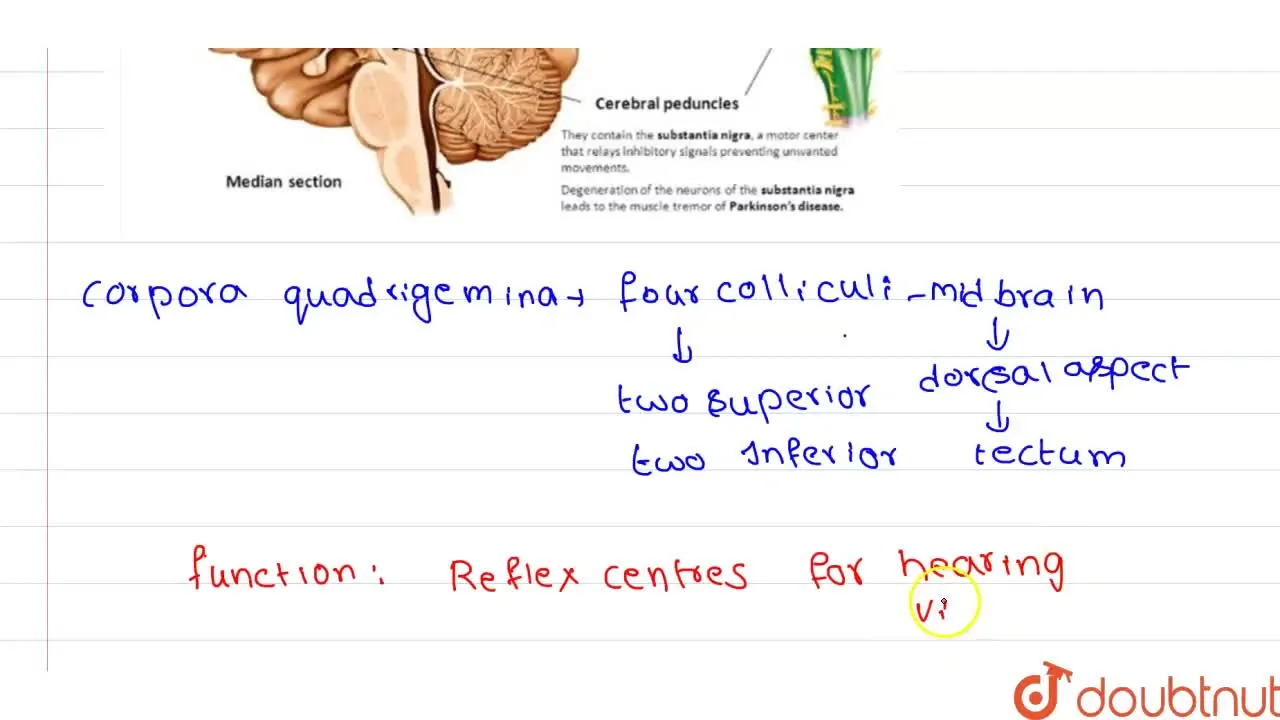 Cerebral peduncles
They contain the substantia nigra, a motor center
that relays inhibitory signals preventing unwanted
movements.
Median section
Degeneration of the neurons of the substantia nigra
leads to the muscle tremor of Parkinson's disease.
corpora quadrigemina → four colliculi - midbrain
↓ ↓
two superior dorsal aspect
↓
two Inferior tectum
function: Reflex centres for hearing
vi
doubtnut